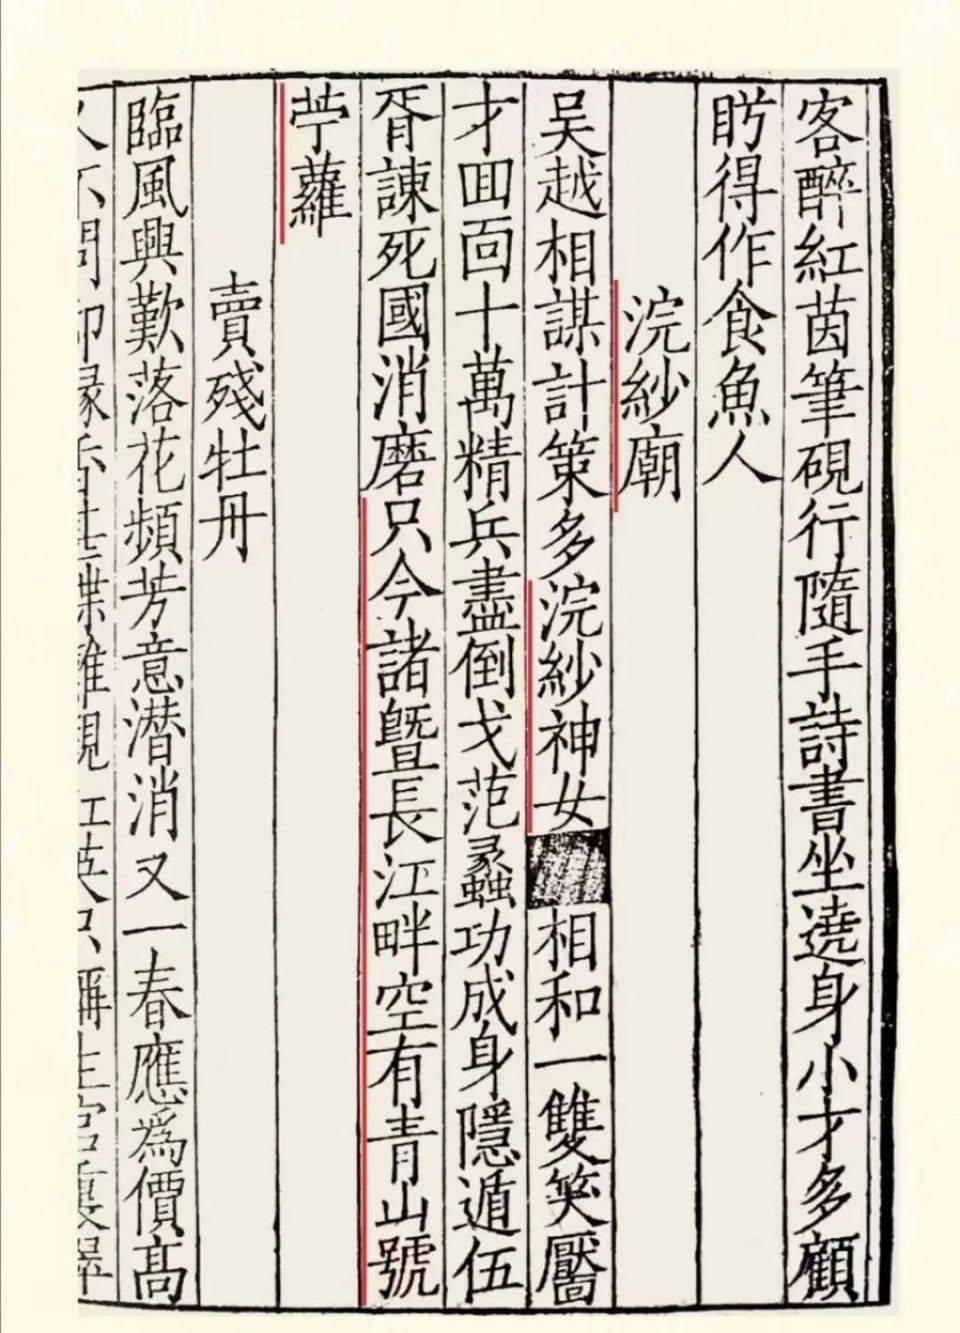 客醉紅茵筆硯行隨手詩書坐遶身小才多顧
盻得作食魚人
浣紗廟
吴越相謀計策多浣紗神女相和一雙笑靨
才囬靣十萬精兵盡倒戈范蠡功成身隱遁伍
胥諫死國消磨只今諸曁長江畔空有青山號
苧蘿
賣殘牡丹
臨風興歎落花頻芳意潜消又一春應爲價高
人不問却縁香甚蝶難親紅英只稱生宫裏翠